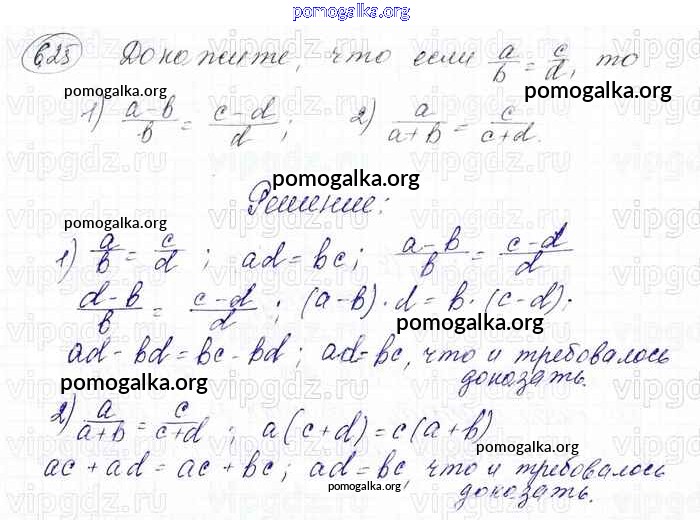 pomogalka.org
625 Докажите, что если a/b = c/d, то
pomogalka.org pomogalka.org
1) (a-b)/b = (c-d)/d; 2) a/(a+b) = c/(c+d).
pomogalka.org
Решение:
pomogalka.org
1) a/b = c/d; ad = bc; (a-b)/b = (c-d)/d
(d-b)/b = (c-d)/d; (a-b)·d = b·(c-d);
pomogalka.org
ad - bd = bc - bd; ad = bc, что и требовалось
pomogalka.org доказать.
2) a/(a+b) = c/(c+d); a(c+d) = c(a+b)
pomogalka.org
ac + ad = ac + bc; ad = bc, что и требовалось
pomogalka.org доказать.
vipgdz.ru